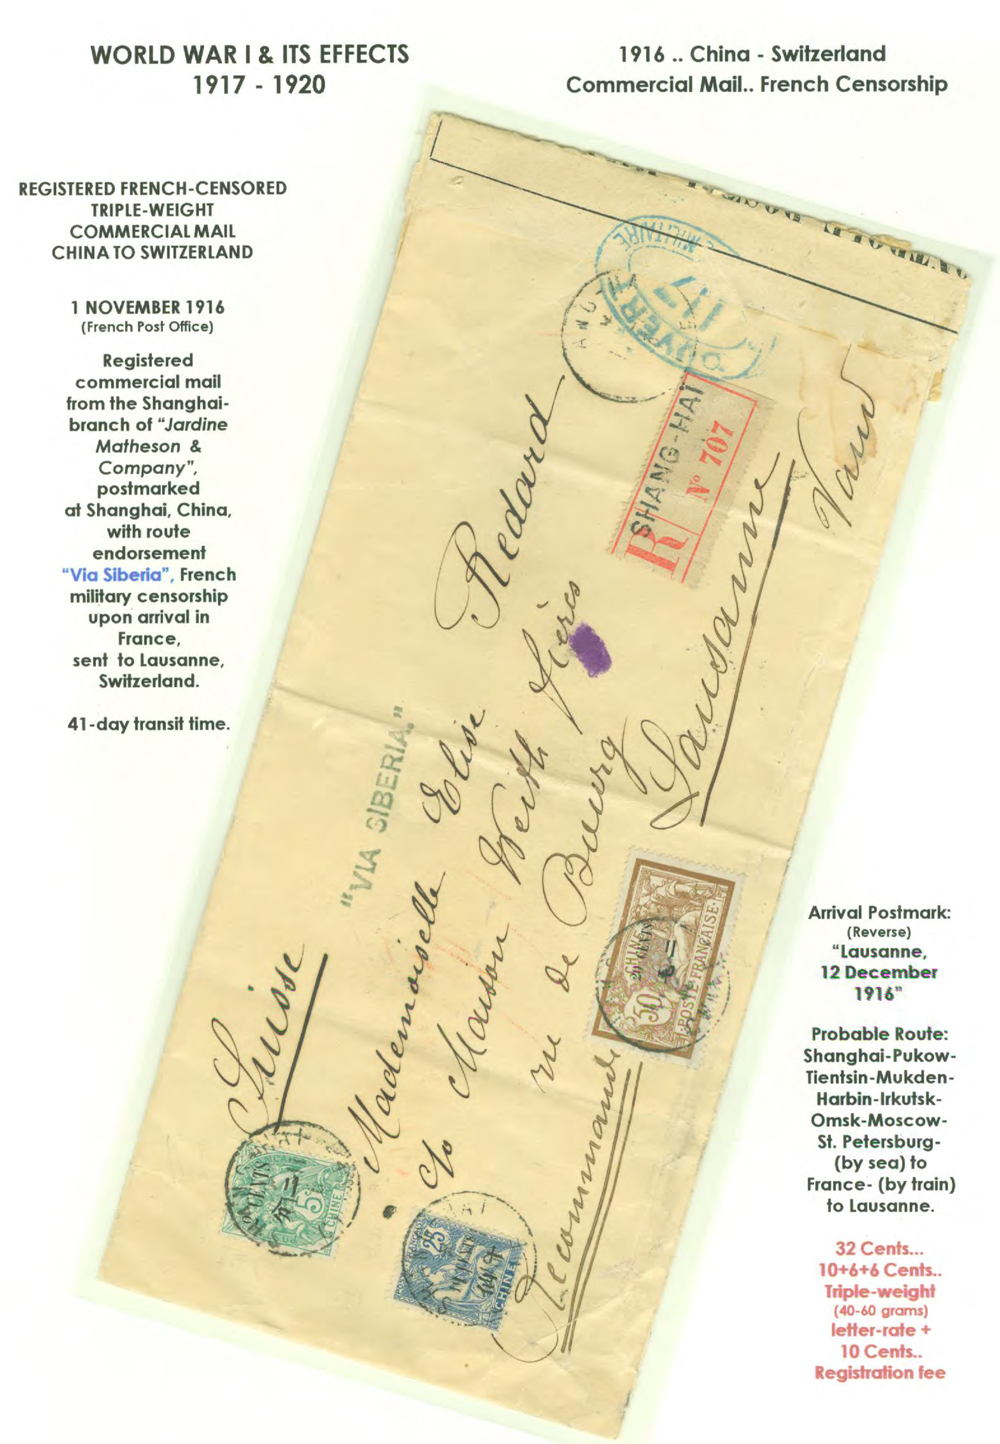 WORLD WAR I & ITS EFFECTS
1917 - 1920
1916 .. China - Switzerland
Commercial Mail.. French Censorship
REGISTERED FRENCH-CENSORED
TRIPLE-WEIGHT
COMMERCIAL MAIL
CHINA TO SWITZERLAND
1 NOVEMBER 1916
(French Post Office)
Registered
commercial mail
from the Shanghai-
branch of "Jardine
Matheson &
Company",
postmarked
at Shanghai, China,
with route
endorsement
"Via Siberia", French
military censorship
upon arrival in
France,
sent to Lausanne,
Switzerland.
41-day transit time.
OUVERT
MILITAIRE
117
R
SHANG-HAI
Nº 707
"VIA SIBERIA."
Suisse
Mademoiselle Elise Redard
c/o Maison Weith frères
rue de Bourg
Lausanne
Vaud
Recommandé
5
CHINE
25
CHINE
CHINE
50
POSTE FRANÇAISE
Arrival Postmark:
(Reverse)
"Lausanne,
12 December
1916"
Probable Route:
Shanghai-Pukow-
Tientsin-Mukden-
Harbin-Irkutsk-
Omsk-Moscow-
St. Petersburg-
(by sea) to
France- (by train)
to Lausanne.
32 Cents...
10+6+6 Cents..
Triple-weight
(40-60 grams)
letter-rate +
10 Cents..
Registration fee